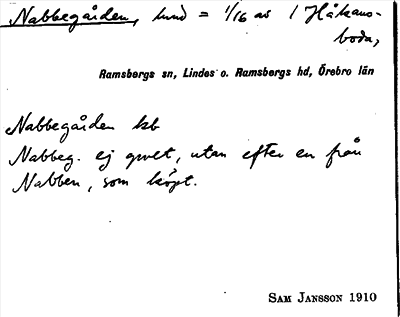 Nabbegården, hmd = 1/16 av 1 Håkans-
boda,
Ramsbergs sn, Lindes o. Ramsbergs hd, Örebro län
Nabbegården kb
Nabbeg. ej gruvet, utan efter en från
Nabben, som köpt.
SAM JANSSON 1910